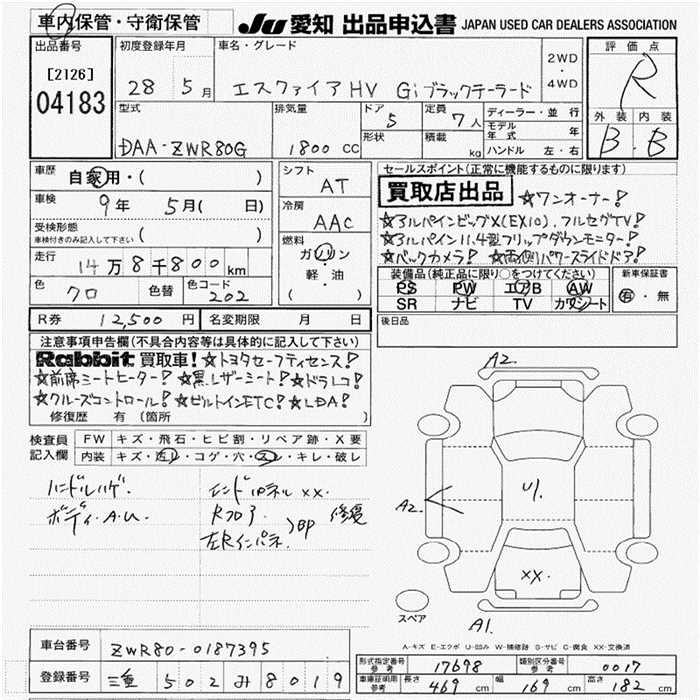 車内保管・守衛保管
JU 愛知 出品申込書 JAPAN USED CAR DEALERS ASSOCIATION
出品番号
[2126]
04183
初度登録年月
28 5月
車名・グレード
エスクァイアHV Giブラックテーラード
2WD
・
4WD
評価点
R
外装 内装
B B
型式
DAA-ZWR80G
排気量
1800 CC
ドア
5
形状
定員
7人
積載 kg
ディーラー・並行
モデル年式 年
ハンドル 左・右
車歴 自家用・( )
車検 9年 5月( 日)
受検形態
車検付きのみ記入して下さい ( )
走行 14万8千800km
色 クロ 色替 色コード 202
シフト
AT
冷房
AAC
燃料
ガソリン
・
軽・油
( )
セールスポイント(正常に機能するものに限ります)
買取店出品 ☆ワンオーナー!
☆アルパインビッグX(EX10)、フルセグTV!
☆アルパイン11.4型フリップダウンモニター!
☆バックカメラ! ☆両側パワースライドドア!
装備品(純正品に限り○をつけてください)
PS PW エアB AW
SR ナビ TV カワシート
新車保証書
有・無
R券 12,500円 名変期限 月 日
後日品
注意事項申告欄(不具合内容等は具体的に記入して下さい)
Rabbit 買取車! ☆トヨタセーフティセンス!
☆前席シートヒーター! ☆黒レザーシート! ☆ドラレコ!
☆クルーズコントロール! ☆ビルトインETC! ☆LDA!
修復歴 有(箇所 )
検査員記入欄
FW キズ・飛石・ヒビ割・リペア跡・X要
内装 キズ・ヨゴレ・コゲ・穴・スレ・キレ・破レ
ハンドルハゲ
ボディ・A.U
インドパネルXX.
Rフロア
左Rインパネ
>BP 修復
A2
A2
U1
XX.
A1
スペア
A-キズ E-エクボ U-凹み W-補修跡 S-サビ C-腐食 XX-交換済
車台番号 ZWR80-0187395
登録番号 三重 502み8019
形式指定番号 参考 17698
類別区分番号 参考 0017
車庫証明用 参考 長さ 469cm 幅 169cm 高さ 182cm